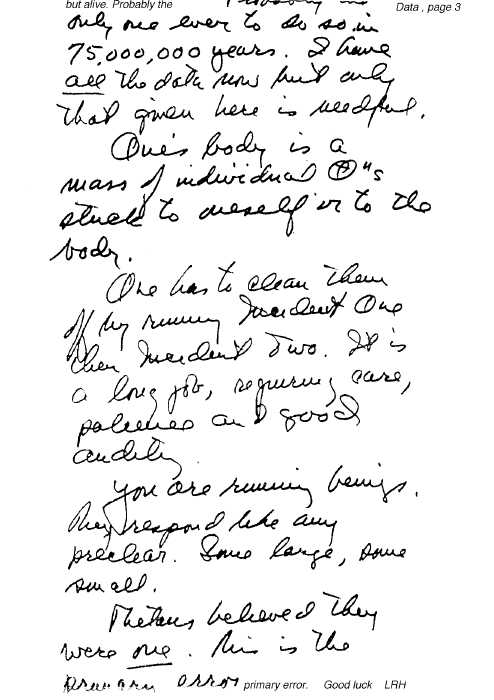 but alive. Probably the
Data , page 3
only one ever to do so in
75,000,000 years. I have
all the data now but only
that given here is needful.
One's body is a
mass of individual
stuck to oneself or to the
body.
One has to clean them
off by running Incident One
then Incident Two. It is
a long job, requiring care,
patience and good
auditing.
You are running beings.
They respond like any
preclear. Some large, some
small.
Thetans believed they
were one. This is the
primary error
primary error. Good luck LRH